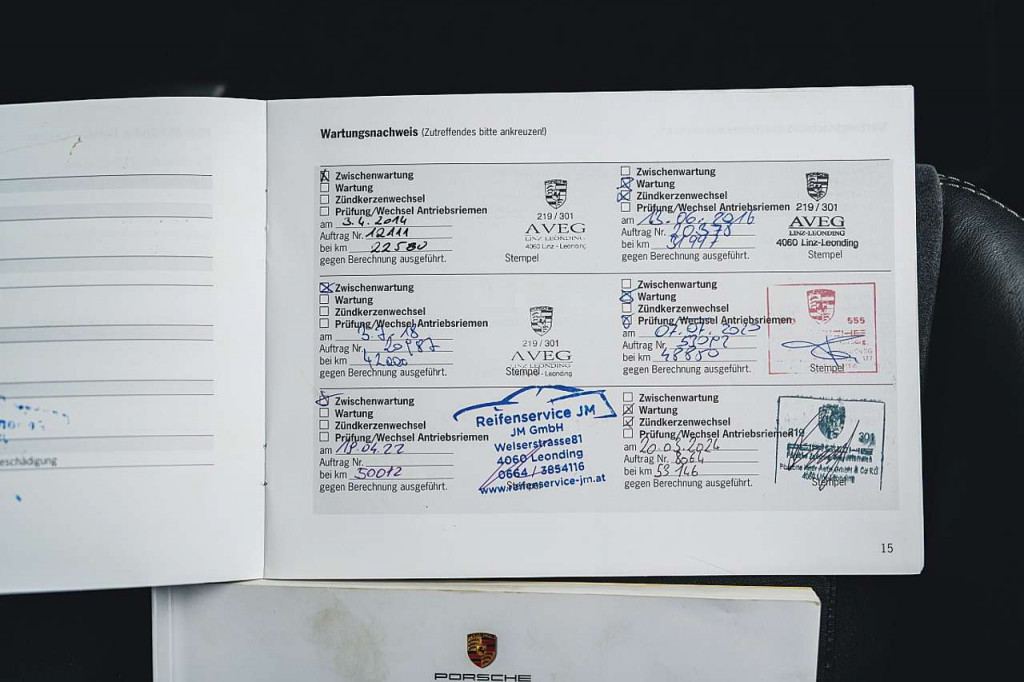 Wartungsnachweis (Zutreffendes bitte ankreuzen!)
Zwischenwartung
Wartung
Zündkerzenwechsel
Prüfung/Wechsel Antriebsriemen
am 3.4.2014
Auftrag Nr. 12111
bei km 22580
gegen Berechnung ausgeführt.
219 / 301
AVEG
LINZ-LEONDING
4060 Linz-Leonding
Stempel
Zwischenwartung
Wartung
Zündkerzenwechsel
Prüfung/Wechsel Antriebsriemen
am 15.06.2016
Auftrag Nr. 20378
bei km 31997
gegen Berechnung ausgeführt.
219 / 301
AVEG
LINZ-LEONDING
4060 Linz-Leonding
Stempel
Zwischenwartung
Wartung
Zündkerzenwechsel
Prüfung/Wechsel Antriebsriemen
am
Auftrag Nr. 20987
bei km 42000
gegen Berechnung ausgeführt.
219 / 301
AVEG
Stempel
Zwischenwartung
Wartung
Zündkerzenwechsel
Prüfung/Wechsel Antriebsriemen
am
Auftrag Nr.
bei km 48880
gegen Berechnung ausgeführt.
555
Stempel
Zwischenwartung
Wartung
Zündkerzenwechsel
Prüfung/Wechsel Antriebsriemen
am 19.04.22
Auftrag Nr.
bei km 50012
gegen Berechnung ausgeführt.
Reifenservice JM
JM GmbH
Welserstrasse81
4060 Leonding
0664 / 3854116
www.reifenservice-jm.at
Zwischenwartung
Wartung
Zündkerzenwechsel
Prüfung/Wechsel Antriebsriemen
am 20.03.2024
Auftrag Nr. 8064
bei km 53146
gegen Berechnung ausgeführt.
301
Stempel
15
PORSCHE